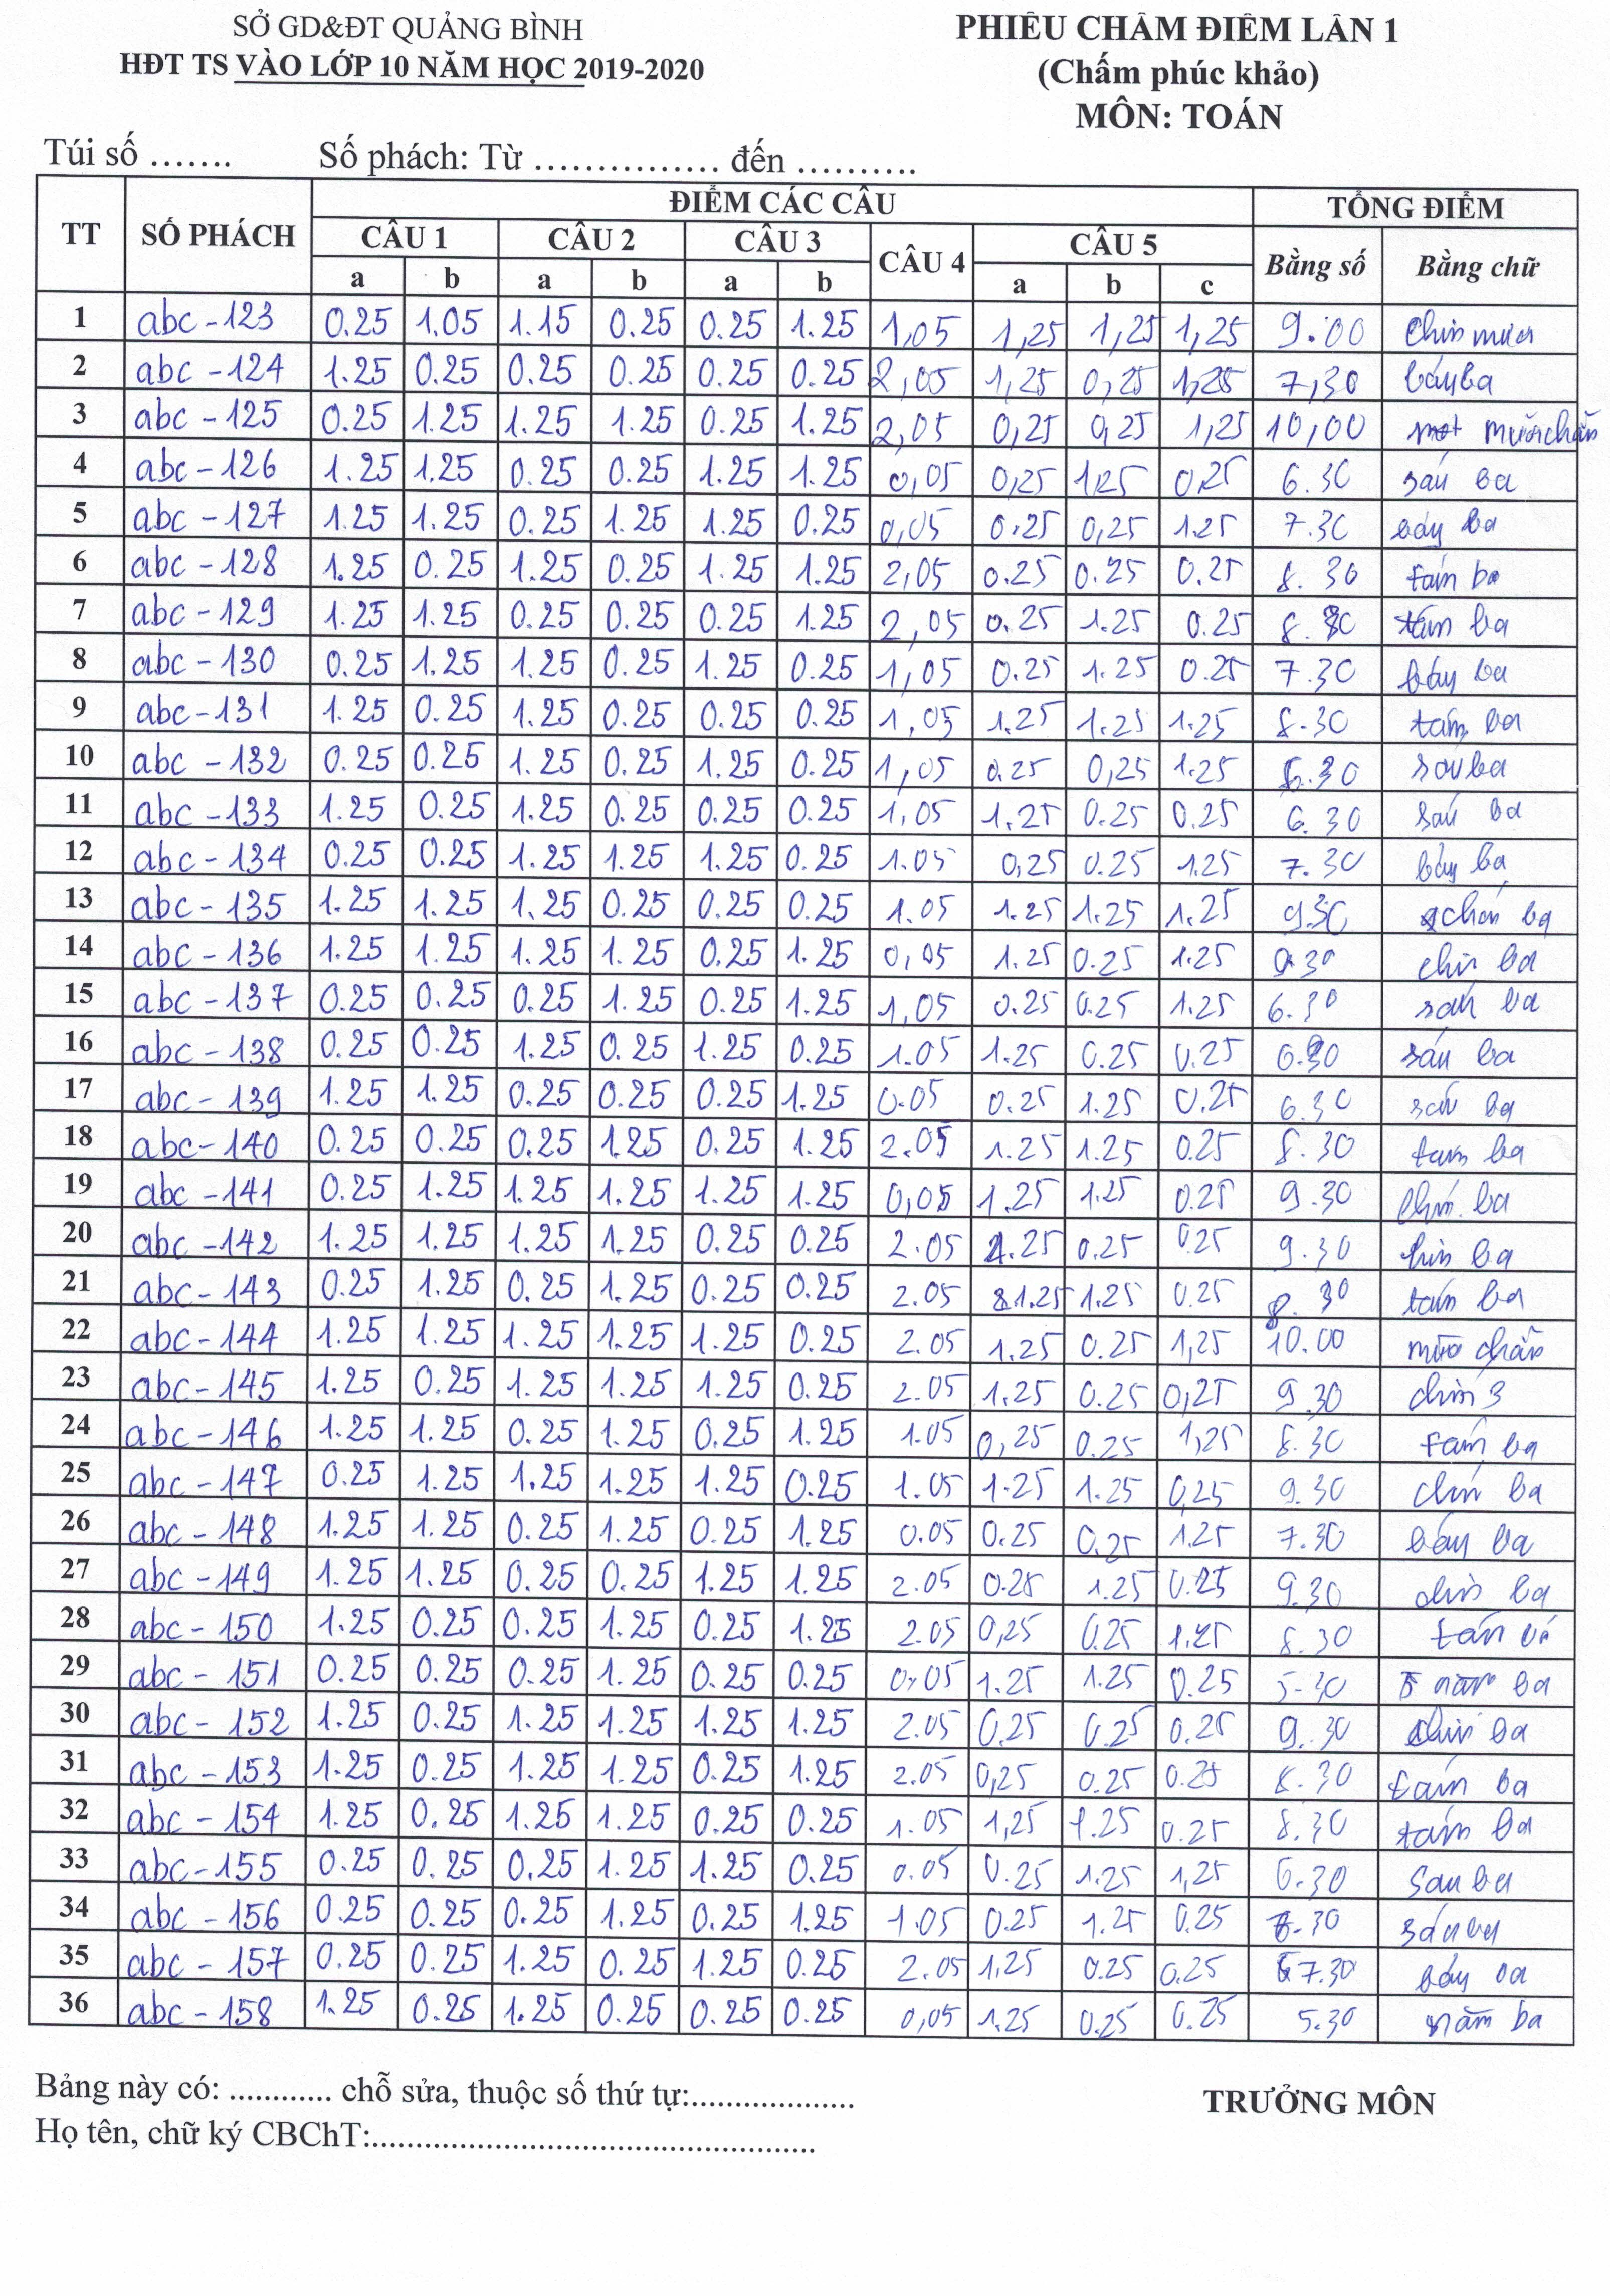 SỞ GD&ĐT QUẢNG BÌNH
HĐT TS VÀO LỚP 10 NĂM HỌC 2019-2020
PHIẾU CHẤM ĐIỂM LẦN 1
(Chấm phúc khảo)
MÔN: TOÁN
Túi số ....... Số phách: Từ ............... đến ..........
TT SỐ PHÁCH ĐIỂM CÁC CÂU TỔNG ĐIỂM
CÂU 1 CÂU 2 CÂU 3 CÂU 4 CÂU 5 Bằng số Bằng chữ
a b a b a b a b c
1 abc - 123 0.25 1.05 1.15 0.25 0.25 1.25 1,05 1,25 1,25 1,25 9.00
2 abc - 124 1.25 0.25 0.25 0.25 0.25 0.25 2,05 1,25 0,25 1,25 7,30 bảy ba
3 abc - 125 0.25 1.25 1.25 1.25 0.25 1.25 2,05 0,25 0,25 1,25 10,00 mười chẵn
4 abc - 126 1.25 1.25 0.25 0.25 1.25 1.25 0,05 0,25 1,25 0,25 6.30 sáu ba
5 abc - 127 1.25 1.25 0.25 1.25 1.25 0.25 0,05 0.25 0,25 1.25 7.30 bảy ba
6 abc - 128 1.25 0.25 1.25 0.25 1.25 1.25 2,05 0.25 0.25 0.25 8.30 tám ba
7 abc - 129 1.25 1.25 0.25 0.25 0.25 1.25 2,05 0.25 1.25 0.25 8.30 tám ba
8 abc - 130 0.25 1.25 1.25 0.25 1.25 0.25 1,05 0.25 1.25 0.25 7.30 bảy ba
9 abc - 131 1.25 0.25 1.25 0.25 0.25 0.25 1,05 1.25 1.25 1.25 8.30 tám ba
10 abc - 132 0.25 0.25 1.25 0.25 1.25 0.25 1,05 0.25 0,25 1.25 6.30 sáu ba
11 abc - 133 1.25 0.25 1.25 0.25 0.25 0.25 1,05 1.25 0.25 0.25 6.30 sáu ba
12 abc - 134 0.25 0.25 1.25 1.25 1.25 0.25 1.05 0,25 0.25 1.25 7.30 bảy ba
13 abc - 135 1.25 1.25 1.25 0.25 0.25 0.25 1.05 1.25 1.25 1.25 9.30 chín ba
14 abc - 136 1.25 1.25 1.25 1.25 0.25 1.25 0,05 1.25 0.25 1.25 9.30 chín ba
15 abc - 137 0.25 0.25 0.25 1.25 0.25 1.25 1,05 0.25 0.25 1.25 6.30 sáu ba
16 abc - 138 0.25 0.25 1.25 0.25 1.25 0.25 1.05 1.25 0.25 0.25 6.30 sáu ba
17 abc - 139 1.25 1.25 0.25 0.25 0.25 1.25 0.05 0.25 1.25 0.25 6.30 sáu ba
18 abc - 140 0.25 0.25 0.25 1.25 0.25 1.25 2.05 1.25 1.25 0.25 8.30 tám ba
19 abc - 141 0.25 1.25 1.25 1.25 1.25 1.25 0,05 1.25 1.25 0.25 9.30 chín ba
20 abc - 142 1.25 1.25 1.25 1.25 0.25 0.25 2.05 1.25 0.25 0.25 9.30 chín ba
21 abc - 143 0.25 1.25 0.25 1.25 0.25 0.25 2.05 1.25 1.25 0.25 8.30 tám ba
22 abc - 144 1.25 1.25 1.25 1.25 1.25 0.25 2.05 1.25 0.25 1,25 10.00 mười chẵn
23 abc - 145 1.25 0.25 1.25 1.25 1.25 0.25 2.05 1.25 0.25 0,25 9.30 chín 3
24 abc - 146 1.25 1.25 0.25 1.25 0.25 1.25 1.05 0,25 0.25 1,25 8.30 tám ba
25 abc - 147 0.25 1.25 1.25 1.25 1.25 0.25 1.05 1.25 1.25 0,25 9.30 chín ba
26 abc - 148 1.25 1.25 0.25 1.25 0.25 1.25 0.05 0.25 0.25 1.25 7.30 bảy ba
27 abc - 149 1.25 1.25 0.25 0.25 1.25 1.25 2.05 0.25 1.25 0.25 9.30 chín ba
28 abc - 150 1.25 0.25 0.25 1.25 0.25 1.25 2.05 0,25 0.25 1.25 8.30 tám
29 abc - 151 0.25 0.25 0.25 1.25 0.25 0.25 0,05 1.25 1.25 0.25 5.30 năm ba
30 abc - 152 1.25 0.25 1.25 1.25 1.25 1.25 2.05 0,25 0.25 0.25 9.30 chín ba
31 abc - 153 1.25 0.25 1.25 1.25 0.25 1.25 2.05 0,25 0.25 0.25 8.30 tám ba
32 abc - 154 1.25 0.25 1.25 1.25 0.25 0.25 1.05 1,25 1.25 0.25 8.30 tám ba
33 abc - 155 0.25 0.25 0.25 1.25 1.25 0.25 0.05 0.25 1.25 1,25 6.30 sáu ba
34 abc - 156 0.25 0.25 0.25 1.25 0.25 1.25 1.05 0.25 1.25 0.25 6.30 sáu ba
35 abc - 157 0.25 0.25 1.25 0.25 1.25 0.25 2.05 1,25 0.25 0.25 7.30 bảy ba
36 abc - 158 1.25 0.25 1.25 0.25 0.25 0.25 0,05 1.25 0.25 0.25 5.30 năm ba
Bảng này có: ............ chỗ sửa, thuộc số thứ tự:....................
TRƯỞNG MÔN
Họ tên, chữ ký CBChT:......................................................